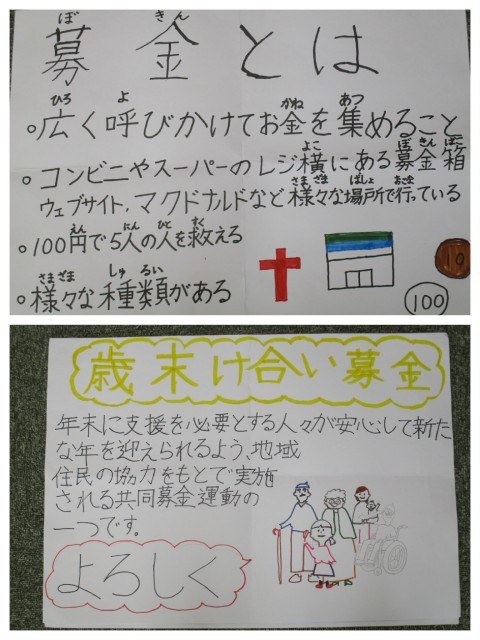 募金とは
ぼ きん
。広く呼びかけてお金を集めること
ひろ よ かね あつ
。コンビニやスーパーのレジ横にある募金箱
よこ ぼ きん ばこ
ウェブサイト,マクドナルドなど様々な場所で行っている
さまざま ばしょ おこな
。100円で5人の人を救える
えん にん ひと すく
。様々な種類がある
さまざま しゅ るい
10
100
歳末け合い募金
年末に支援を必要とする人々が安心して新た
な年を迎えられるよう、地域
住民の協力をもとで実施
される共同募金運動の
一つです。
よろしく